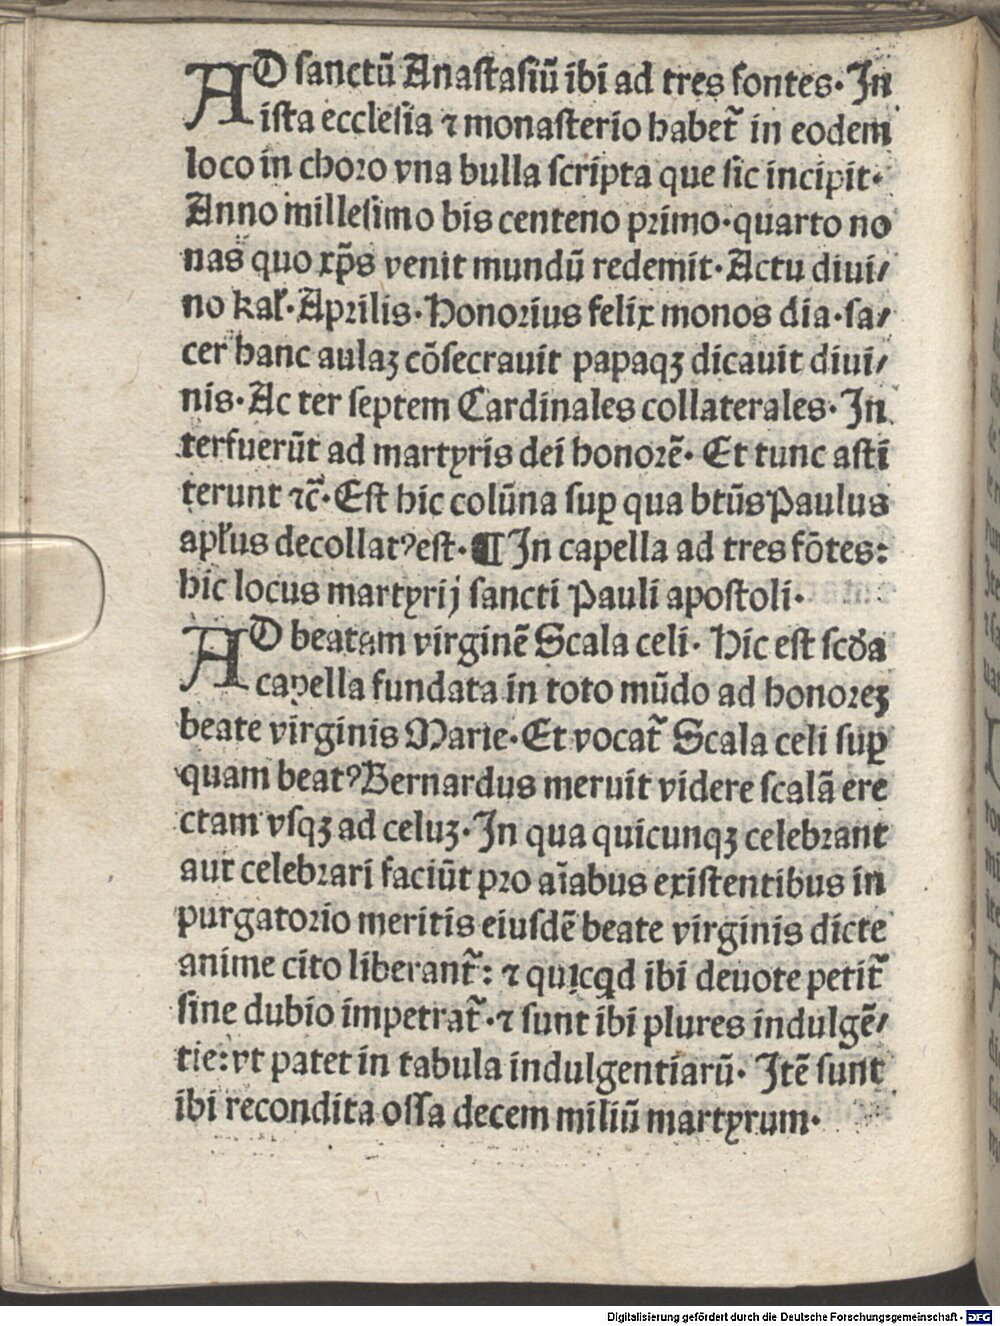 AD sanctū Anastasiū ibi ad tres fontes. In
ista ecclesia ⁊ monasterio habet᷑ in eodem
loco in choro vna bulla scripta que sic incipit.
Anno millesimo bis centeno primo. quarto no
nas quo xp̄s venit mundū redemit. Actu diui/
no kal̄. Aprilis. Honorius felix monos dia. sa/
cer hanc aulaꝫ cōsecrauit papaqꝫ dicauit diui/
nis. Ac ter septem Cardinales collaterales. In
terfuerūt ad martyris dei honorē. Et tunc asti
terunt ⁊c̄. Est hic colūna suꝑ qua btūs Paulus
apl̄us decollatꝰ est. ¶ In capella ad tres fōtes:
hic locus martyrij sancti Pauli apostoli.
AD beatam virginē Scala celi. Hic est scd̄a
capella fundata in toto mūdo ad honoreꝫ
beate virginis Marie. Et vocat᷑ Scala celi suꝑ
quam beatꝰ Bernardus meruit videre scalā ere
ctam vsqꝫ ad celuꝫ. In qua quicunqꝫ celebrant
aut celebrari faciūt pro aīabus existentibus in
purgatorio meritis eiusdē beate virginis dicte
anime cito liberant᷑: ⁊ quicqd ibi deuote petit᷑
sine dubio impetrat᷑. ⁊ sunt ibi plures indulgē/
tie: vt patet in tabula indulgentiarū. Itē sunt
ibi recondita ossa decem miliū martyrum.
Digitalisierung gefördert durch die Deutsche Forschungsgemeinschaft - DFG